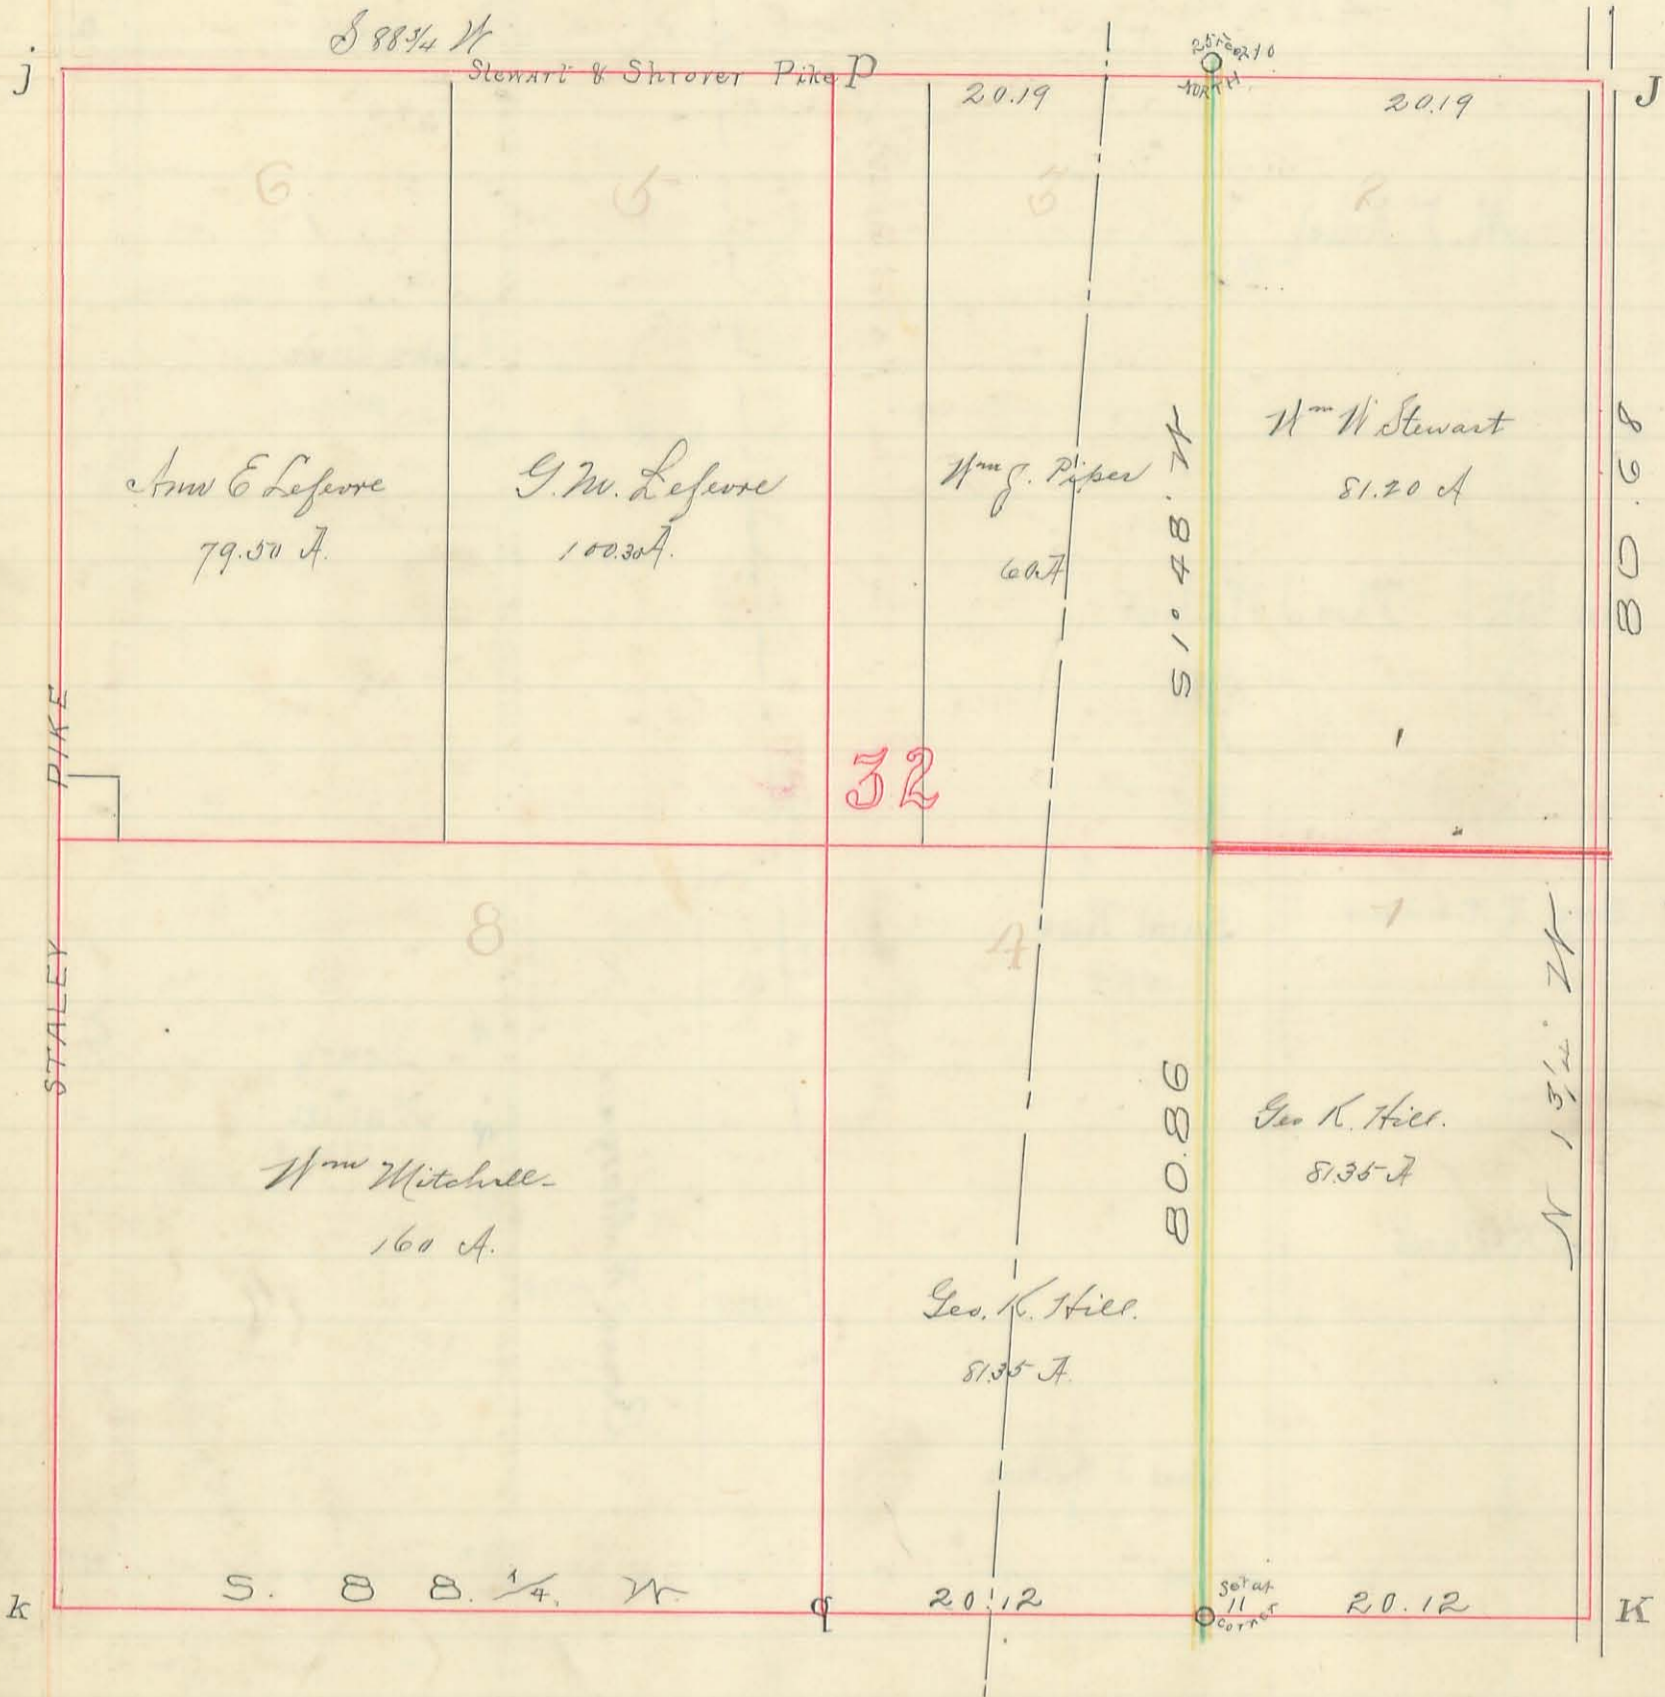 S 88 3/4 W
j
Stewart & Shrover Pike
P
20.19
NORTH
20.19
J
6
5
5
2
Ann E Lefevre
79.50 A.
G. W. Lefevre
100.30 A.
Wm J. Piper
60 A
S 1° 48' W
Wm W Stewart
81.20 A
80.68
STALEY PIKE
32
8
4
1
Wm Mitchell
160 A.
Geo. K. Hill.
81.35 A.
80.86
Geo K. Hill.
81.35 A
k
S. 88. 1/4. W.
q
20.12
Set at
11
corner
20.12
K